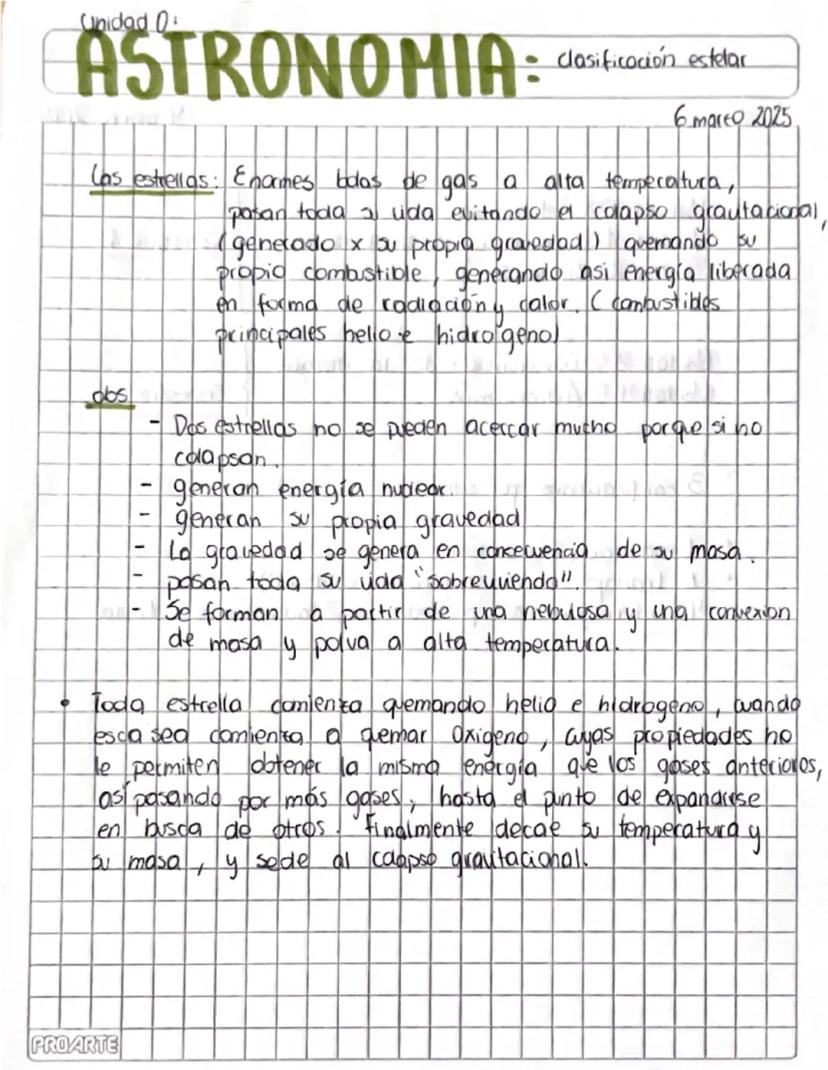 Unidad 0:
ASTRONOMIA: clasificación estelar
6 marzo 2025
Las estrellas: Enormes bolas de gas a alta temperatura,
pasan toda su vida evitando el colapso gravitacional,
(generado x su propia gravedad) quemando su
propio combustible, generando asi energía liberada
en forma de radiación y calor. (combustibles
principales helio e hidrógeno)
obs
- Dos estrellas no se pueden acercar mucho porque si no
colapsan.
- generan energía nuclear.
- generan su propia gravedad
- La gravedad se genera en concecuencia de su masa.
- pasan toda su vida "sobreviviendo".
- Se forman a partir de una nebulosa y una convexion
de masa y polvo a alta temperatura.
• Toda estrella comienza quemando helio e hidrogeno, cuando
escasea comienza a quemar oxigeno, cuyas propiedades no
le permiten obtener la misma energía que los gases anteriores,
así pasando por más gases, hasta el punto de expandirse
en busca de otros. Finalmente decae su temperatura y
su masa, y sede al colapso gravitacional.
PROARTE